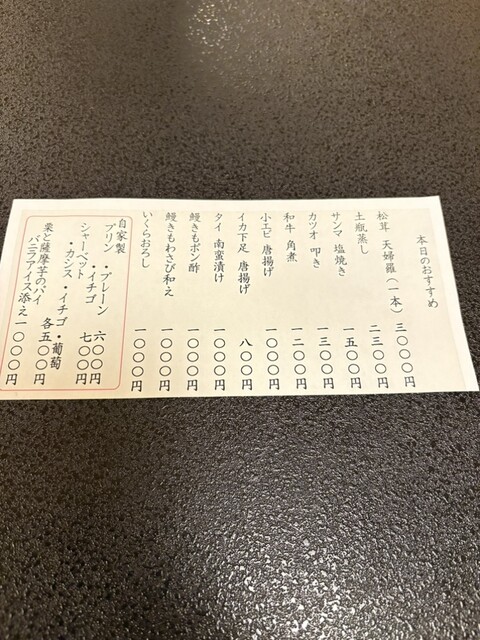 本日のおすすめ
松茸 天婦羅(一本) 三〇〇〇円
土瓶蒸し 二三〇〇円
サンマ 塩焼き 一五〇〇円
カツオ 叩き 一三〇〇円
和牛 角煮 一二〇〇円
小エビ 唐揚げ 一〇〇〇円
イカ下足 唐揚げ 八〇〇円
タイ 南蛮漬け 一〇〇〇円
鰻きもポン酢 一〇〇〇円
鰻きもわさび和え 一〇〇〇円
いくらおろし 一〇〇〇円
自家製
プリン ・プレーン 六〇〇円
・イチゴ 七〇〇円
シャーベット
・カシス・イチゴ・葡萄 各五〇〇円
栗と薩摩芋のパイ
バニラアイス添え 一〇〇〇円